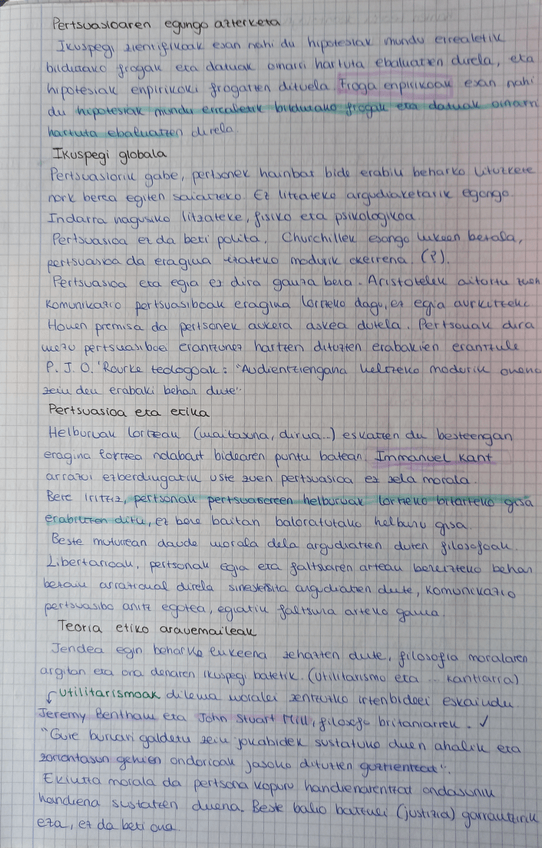 Pertsuasioaren egungo azterketa
Ikuspegi zientifikoak esan nahi du hipotesiak mundu errealetik
bildutako frogak eta datuak oinarri hartuta ebaluatzen direla, eta
hipotesiak enpirikoki frogatzen dituela. Froga enpirikoak esan nahi
du hipotesiak mundu errealetik bildutako frogak eta datuak oinarri
hartuta ebaluatzen direla
Ikuspegi globala
Pertsuasiorik gabe, pertsonek hainbat bide erabili beharko lituzkete
nork berea egiten saiatzeko. Ez litzateke argudiaketarik egongo.
Indarra nagusiko litzateke, fisiko eta psikologikoa
Pertsuasioa ez da beti polita. Churchillek esango lukeen bezala,
pertsuasioa da eragina izateko modurik okerrena (?).
Pertsuasioa eta egia ez dira gauza bera. Aristotelek aitortu zuen
komunikazio pertsuasiboak eragina lortzeko dago, ez egia aurkitzeko
Honen premisa da pertsonek aukera askea dutela. Pertsonak dira
mezu pertsuasiboei erantzunez hartzen dituzten erabakien erantzule
P. J. O.'Rourke teologoak: "Audientziengana heltzeko modurik onena
zein den erabaki behar dute"
Pertsuasioa eta etika
Helburuak lortzeak (maitasuna, dirua..) eskatzen du besteengan
eragina lortzea nolabait bidearen puntu batean. Immanuel Kant
arrazoi ezberdinengatik uste zuen pertsuasioa ez zela morala
Bere iritziz, pertsonak pertsuasoreen helburuak lortzeko bitarteko gisa
erabiltzen ditu, ez bere baitan baloratutako helburu gisa.
Beste muturrean daude morala dela argudiatzen duten filosofoak.
Libertarioak, pertsonak egia eta faltsiaren artean bereizteko behar
bezain arrazional direla sinesteitsita argudiatzen dute, komunikazio
pertsuasibo anitz egotea, egiatik faltsura arteko gama
Teoria etiko arauemaileak
Jendea egin beharko lukeena zehatzen dute, filosofia moralaren
argitan eta ona denaren ikuspegi batetik. (utilitarismo eta kantiarra)
Utilitarismoak dilema moralei zentzuzko irtenbideei eskaindu
Jeremy Bentham eta John Stuart Mill, filosofo britaniarrek. ✓
"Gure buruari galdetu zein jokabidek sustatuko duen ahalik eta
zoriontasun gehien ondorioak jasoko dituzten guztientzat".
Ekintza morala da pertsona kopuru handienarentzat ondasunik
handiena sustatzen duena. Beste balio batzuei (justizia) garrantzirik
eza, ez da beti ona